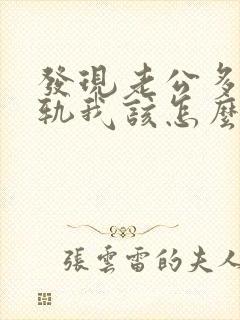 發現老公多
軌我該怎麼
張雲雷的夫人